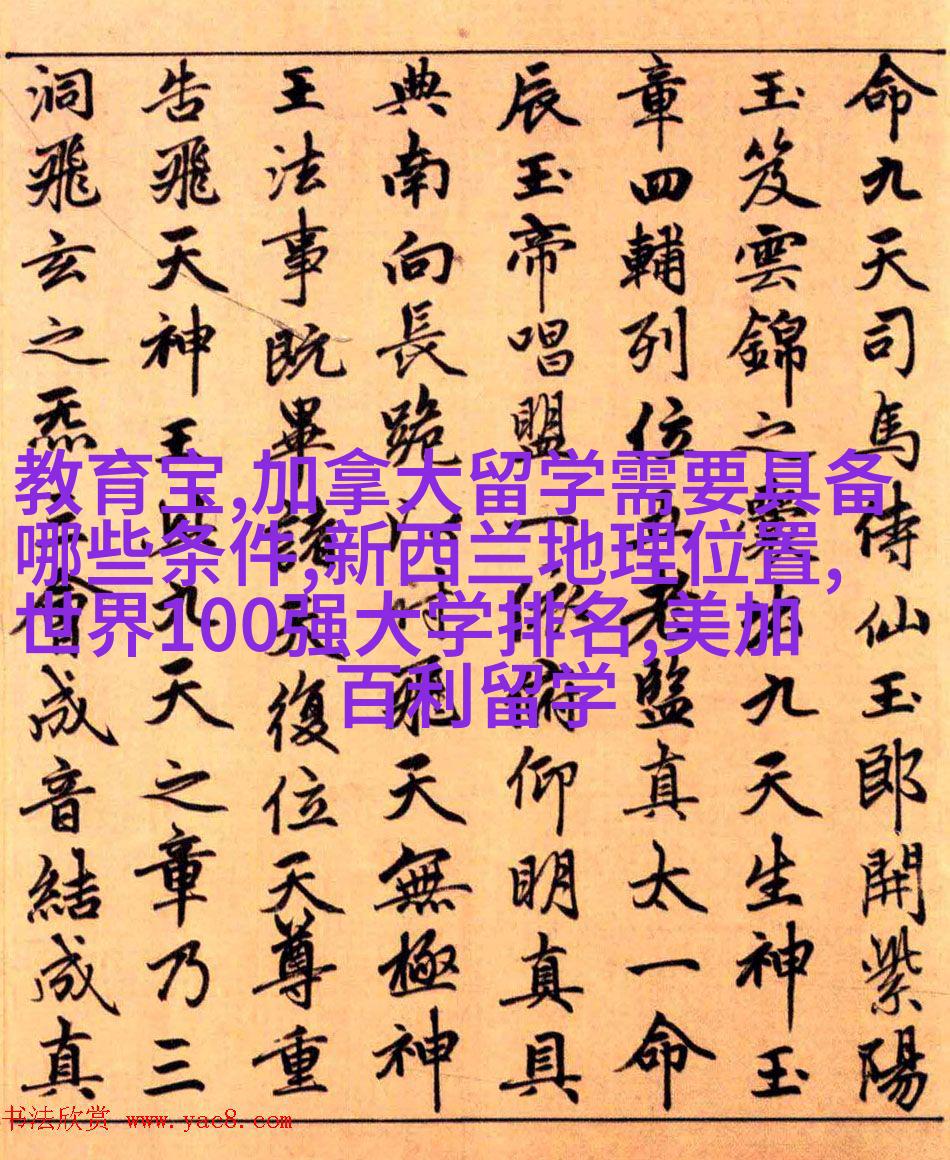 命九天司馬侍仙玉郎開紫陽
玉笈雲錦之囊出九天生神玉
章四輔列位五老監真太一命
辰玉帝唱盟一俯仰明真具
典南向長跪飛天無極神
王法事既畢諸天復位天尊重
告飛天神王此九天之章乃三
洞飛玄之炁三合成音結成真
教育宝,加拿大留学需要具备
哪些条件,新西兰地理位置,
世界100强大学排名,美加
百利留学
书法欣赏 www.yac8.com